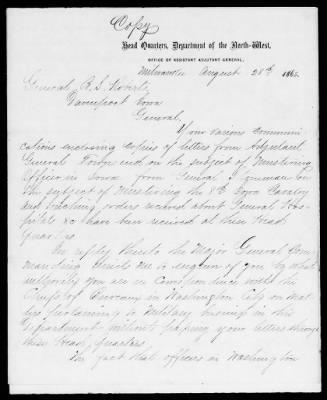 Copy
Head Quarters, Department of the North-West,
OFFICE OF ASSISTANT ADJUTANT GENERAL,
Milwaukee August 28th 1863.
General B. S. Roberts
Davenport Iowa
General,
Your various Communi
cations enclosing copies of letters from Adjutant
General Thomas and on the subject of Mustering
Officer in Iowa from General on
the subject of Mustering the 8th Iowa Cavalry
and Enclosing orders received about General Hos-
pitals &c have been received at these Head
Quarters.
In reply thereto the Major General Com
manding directs me to enquire of you by what
authority you are in Correspondence with the
Chiefs of Bureaus in Washington City on Mat
ters pertaining to Military business in this
Department without passing your letters through
these Head Quarters.
The fact that officers in Washington